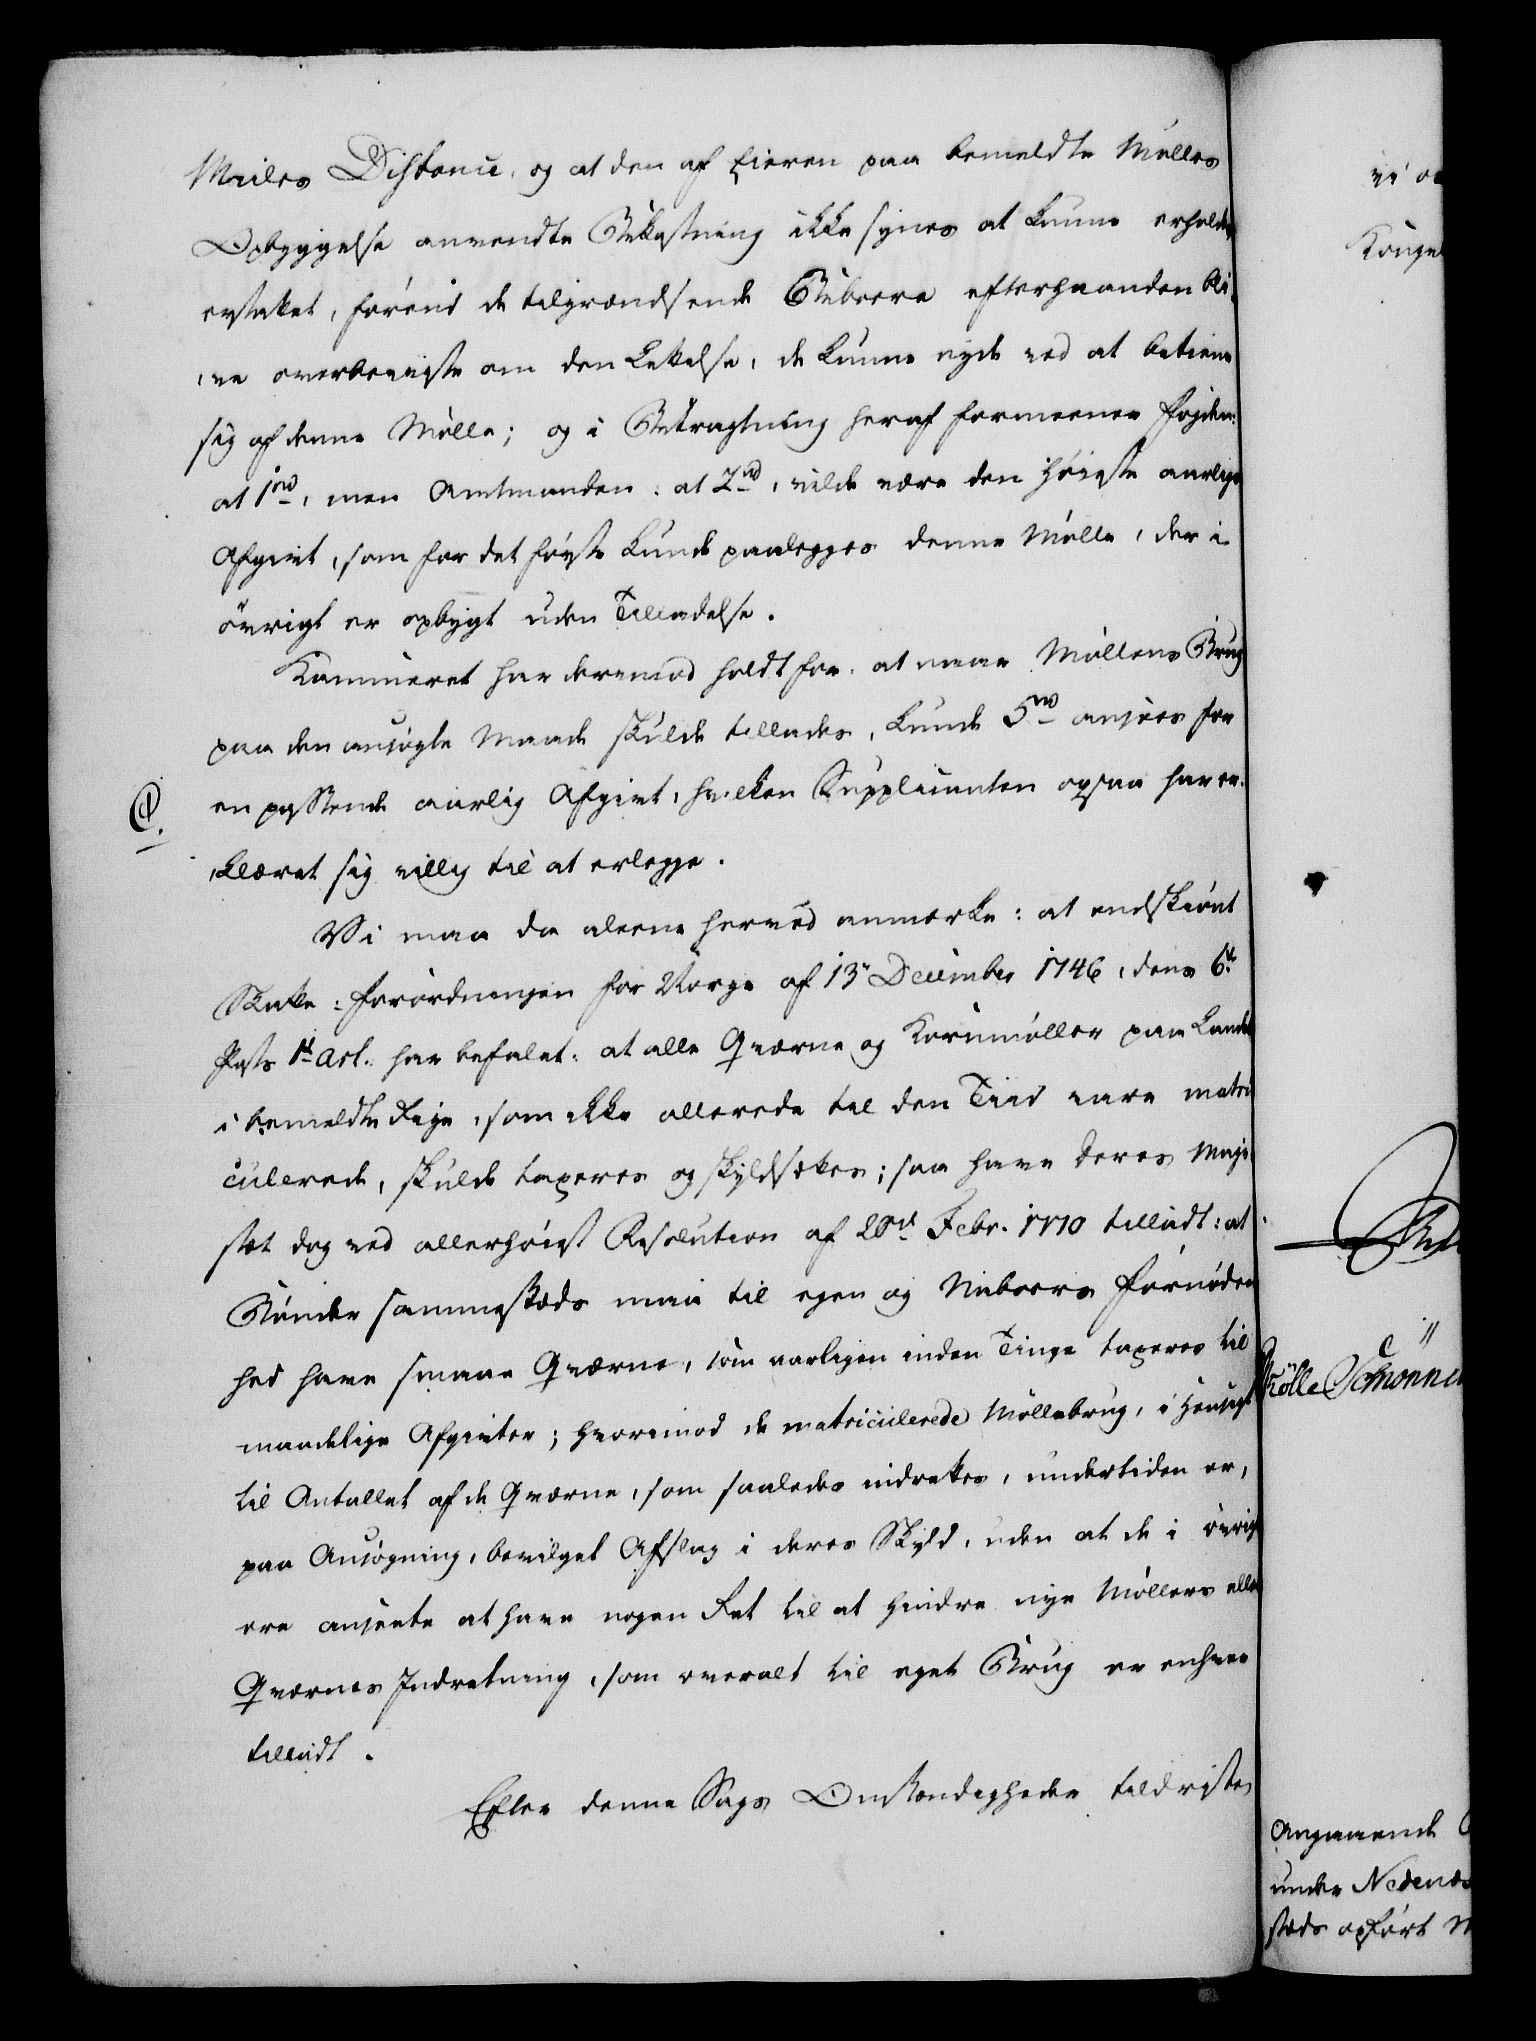 Miiles Distance, og at den af Eieren paa bemeldte Mølles
Opbyggelse anvendte Bekostning ikke synes at kunne erholdes
erstattet, førend de tilgrændsende Beboere efterhaanden bli-
ve overbeviiste om den Lettelse, de kunne nyde ved at betiene
sig af denne Mølle; og i Betragtning heraf formeener Fogden:
at 1 rd, men Amtmanden: at 2 rd, vilde være den høieste aarlige
Afgivt, som for det første kunde paalegges denne Mølle, der i
øvrigt er opbygt uden Tilladelse.
Kammeret har derimod holdt for, at naar Møllens Brug
paa den ansøgte Maade skulde tillades, kunde 5 rd ansees for
en passende aarlig Afgivt, hvilken Supplicanten ogsaa har er-
klæret sig villig til at erlegge.
Vi maa da alene herved anmærke: at endskiønt
Skatte-Forordningen for Norge af 13de December 1746, dens 6te
Posts 1ste Art. har befalet: at alle Qværne og Kornmøller paa Landet
i bemeldte Rige, som ikke allerede til den Tiid vare matri-
culerede, skulde taxeres og skyldsættes; saa have Deres Maje-
stæt dog ved allerhøiest Resolution af Febr. 1770 tilladt: at
Bønder sammesteds maa til egen og Naboers Fornøden-
hed have smaae Qværne, som aarligen inden Tinge taxeres til
maadelige Afgivter; hvorimod de matriculerede Møllebrug, i Hensigt
til Antallet af de Qværne, som saaledes indrettes, undertiden er,
paa Ansøgning, bevilget Afslag i deres Skyld, uden at de i øvrigt
ere ansette at have nogen Ret til at hindre nye Møllers eller
Qværnes Indretning, som overalt til eget Brug er enhver
tilladt.
Efter denne Sags Omstændigheder tildriste
Angaaende
under Nedenæs
steds opført